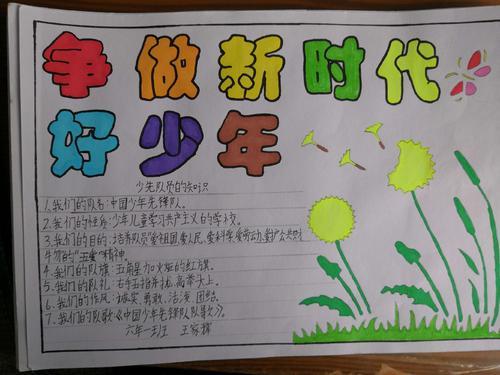 争做新时代
好少年
少先队员的知识
1、我们的队名:中国少年先锋队。
2、我们的性质:少年儿童学习共产主义的学校。
3、我们的目的:培养队员"爱祖国,爱人民,爱科学,爱劳动,爱护公共财
物的"五爱"精神。
4、我们的队旗:五角星加火炬的红旗。
5、我们的队礼:右手五指并拢,高举头上。
6、我们的作风:诚实、勇敢、活泼、团结。
7、我们的队歌:《中国少年先锋队队歌》。
六年一班 王家辉